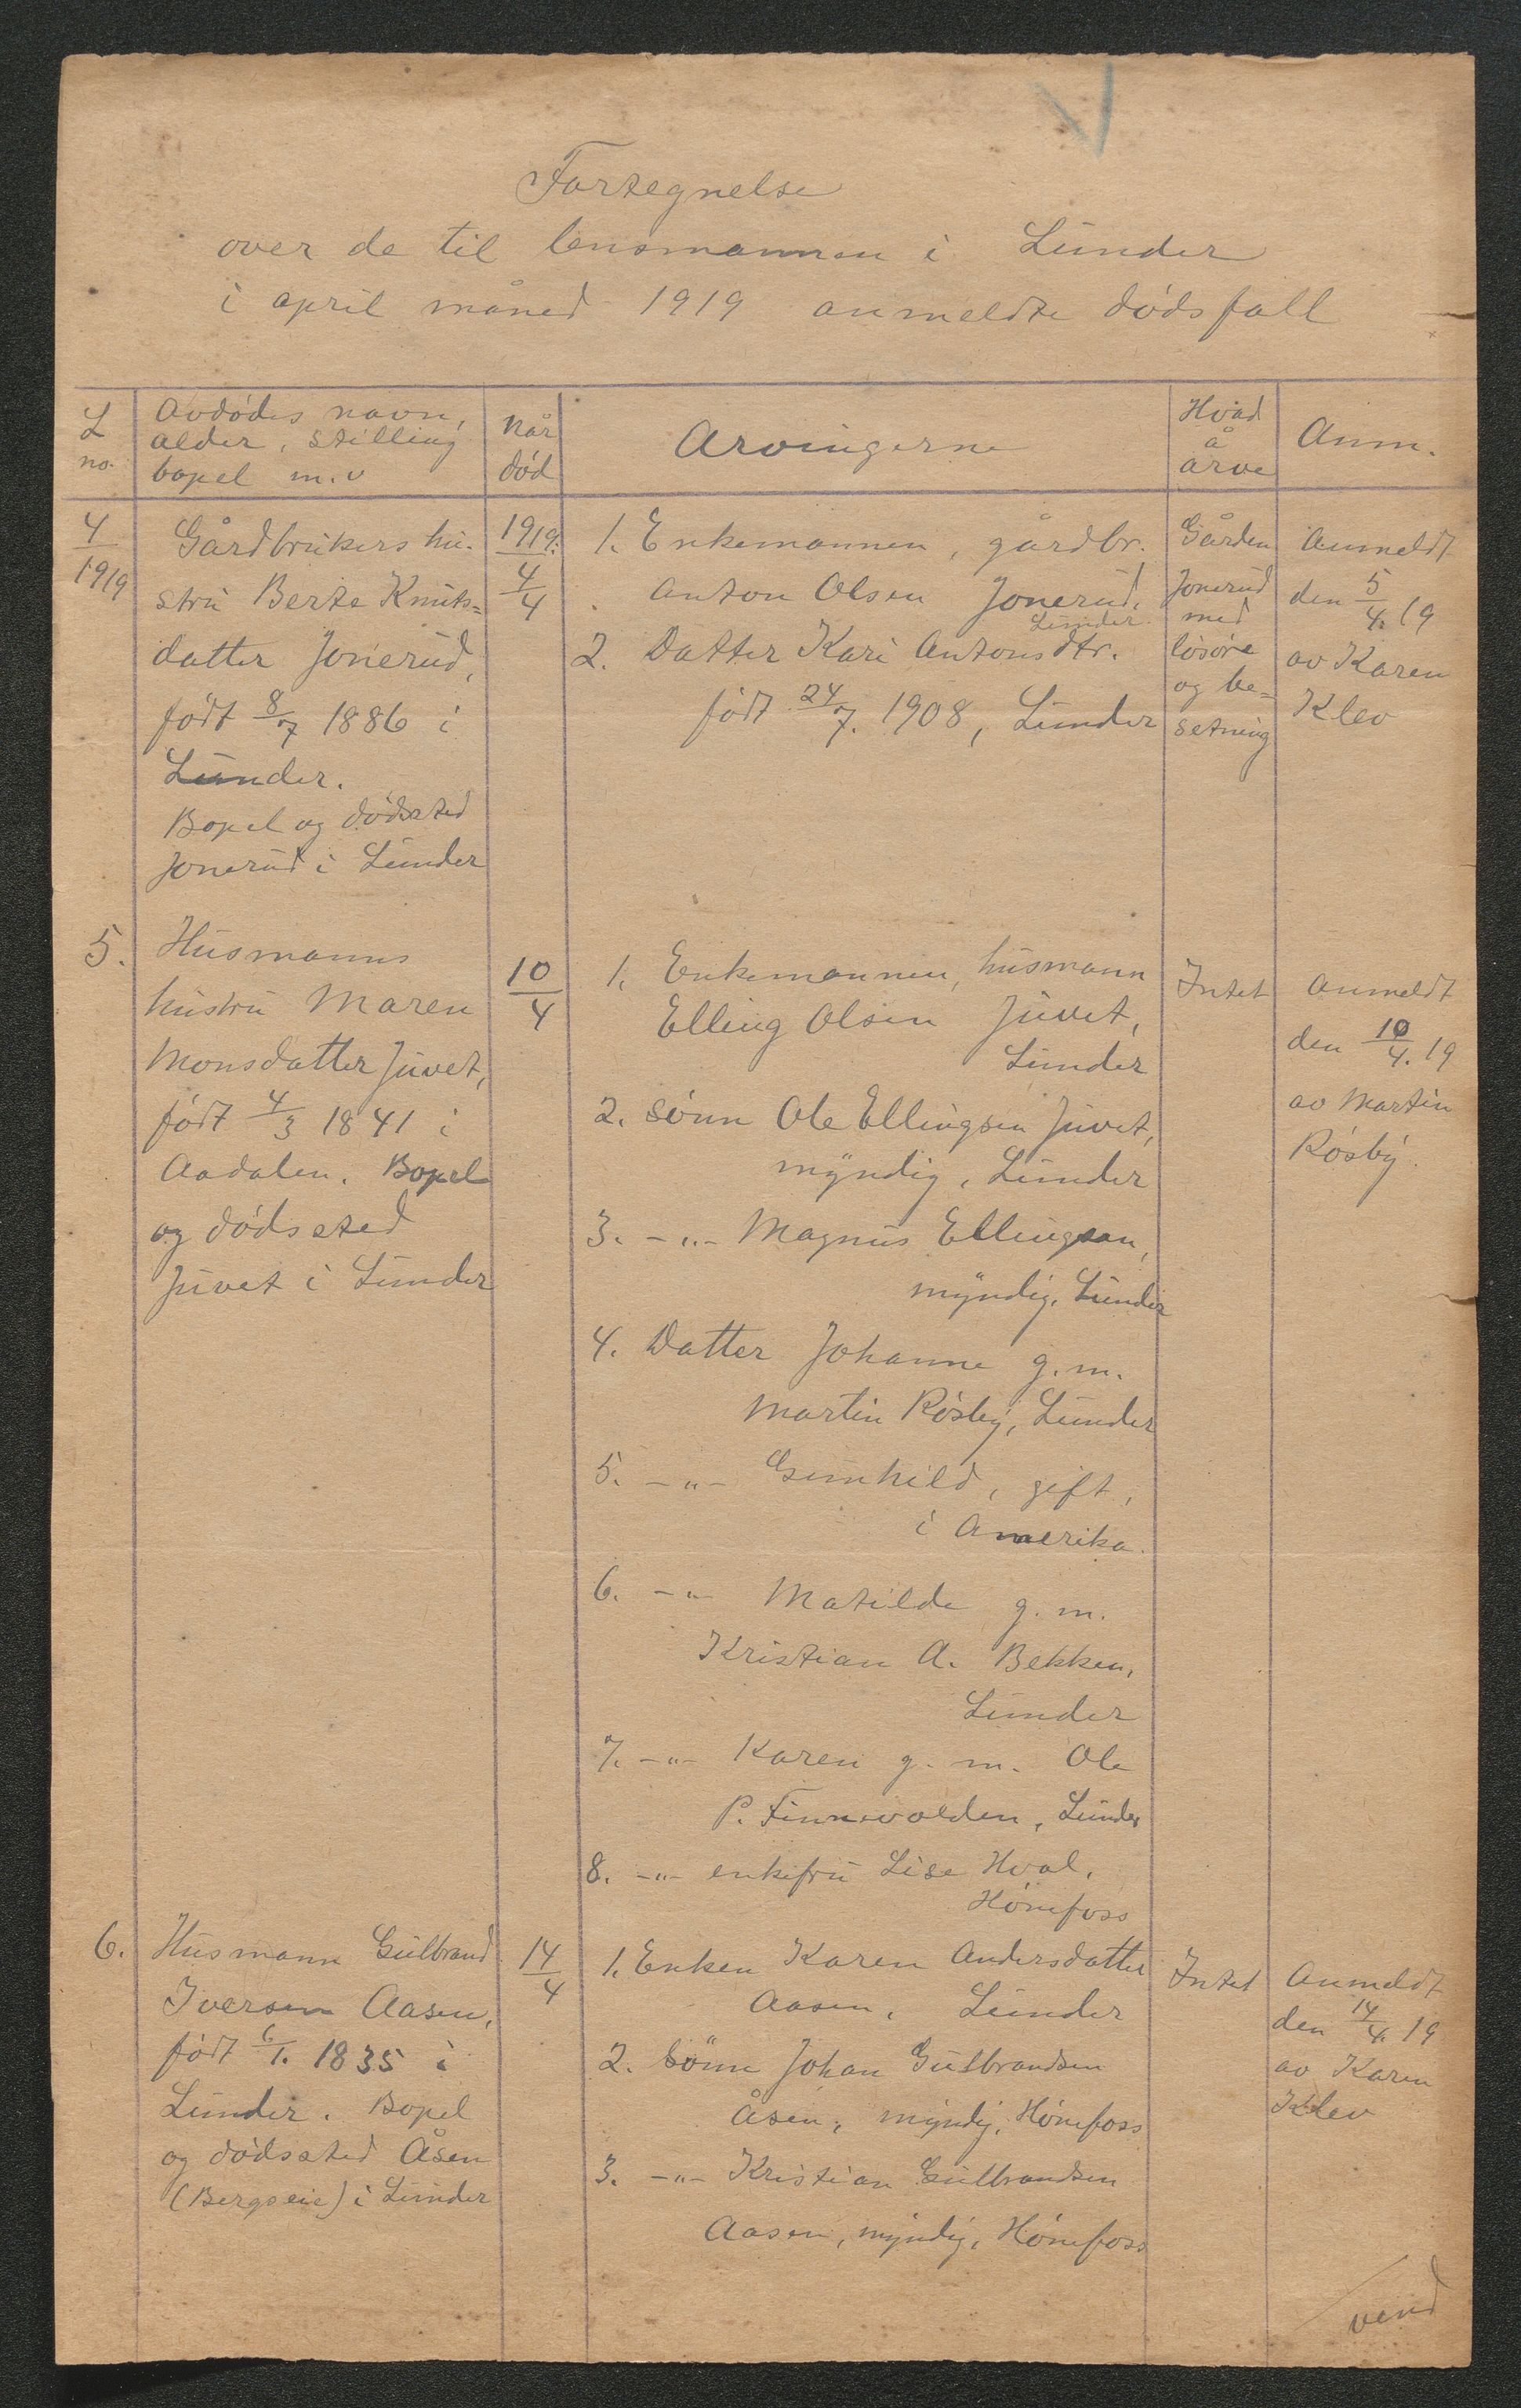 Fortegnelse
over de til lensmannen i Lunder
i april måned 1919 anmeldte dødsfall
L
no.
Avdødes navn,
alder, stilling
bopel m.v
Når
død
Arvingerne
Hvad
å
arve
Anm.
4
1919
Gårdbrukers hu-
stru Berte Knuts=
datter Jonerud,
født 8/7 1886 i
Lunder.
Bopel og dødssted
Jonerud i Lunder
1919.
4/4
1. Enkemannen, gårdbr.
Anton Olsen Jonerud,
Lunder.
2. Datter Kari Antonsdtr.
født 24/7. 1908, Lunder
Gården
Jonerud
med
løsøre
og be=
setning
Anmeldt
den 5/4. 19
av Karen
Klev
5.
Husmanns
hustru Maren
Monsdatter Juvet,
født 4/3 1841 i
Aadalen. Bopel
og dødssted
Juvet i Lunder
10/4
1. Enkemannen, husmann
Elling Olsen Juvet,
Lunder
2. Sønn Ole Ellingsen Juvet,
myndig, Lunder
3. -„- Magnus Ellingsen,
myndig, Lunder
4. Datter Johanne g.m.
Martin Røsby, Lunder
5. -„- Gunhild, gift,
i Amerika.
6. -„- Matilde g.m.
Kristian A. Bekken,
Lunder
7. -„- Karen g.m. Ole
P. Finnevolden, Lunder
8. -„- enkefru Lise Hval,
Hønefoss
Intet
Anmeldt
den 10/4. 19
av Martin
Røsby.
6.
Husmann Gulbrand
Iversen Aasen,
født 6/1. 1835 i
Lunder. Bopel
og dødssted Åsen
(Bergseie) i Lunder
14/4
1. Enken Karen Andersdatter
Aasen, Lunder
2. Sønn Johan Gulbrandsen
Åsen, myndig, Hønefoss
3. -„- Kristian Gulbrandsen
Aasen, myndig, Hønefoss
Intet
Anmeldt
den 14/4. 19
av Karen
Klev
vend